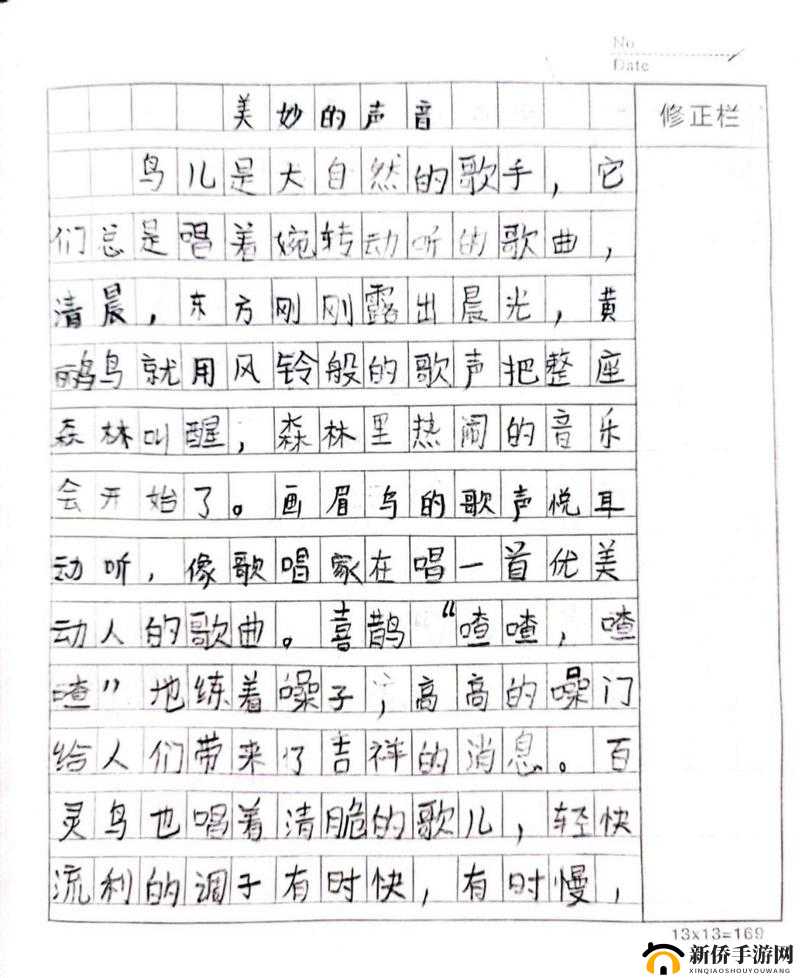 No
Date
美妙的声音
修正栏
鸟儿是大自然的歌手，它
们总是唱着婉转动听的歌曲，
清晨，东方刚刚露出晨光，黄
鹂鸟就用风铃般的歌声把整座
森林叫醒，森林里热闹的音乐
会开始了。画眉鸟的歌声悦耳
动听，像歌唱家在唱一首优美
动人的歌曲。喜鹊“喳喳，喳
喳”地练着嗓子，高高的嗓门
给人们带来了吉祥的消息。百
灵鸟也唱着清脆的歌儿，轻快
流利的调子有时快，有时慢，
13x13=169
新侨手游网
XINQIAOSHOUYOUWANG